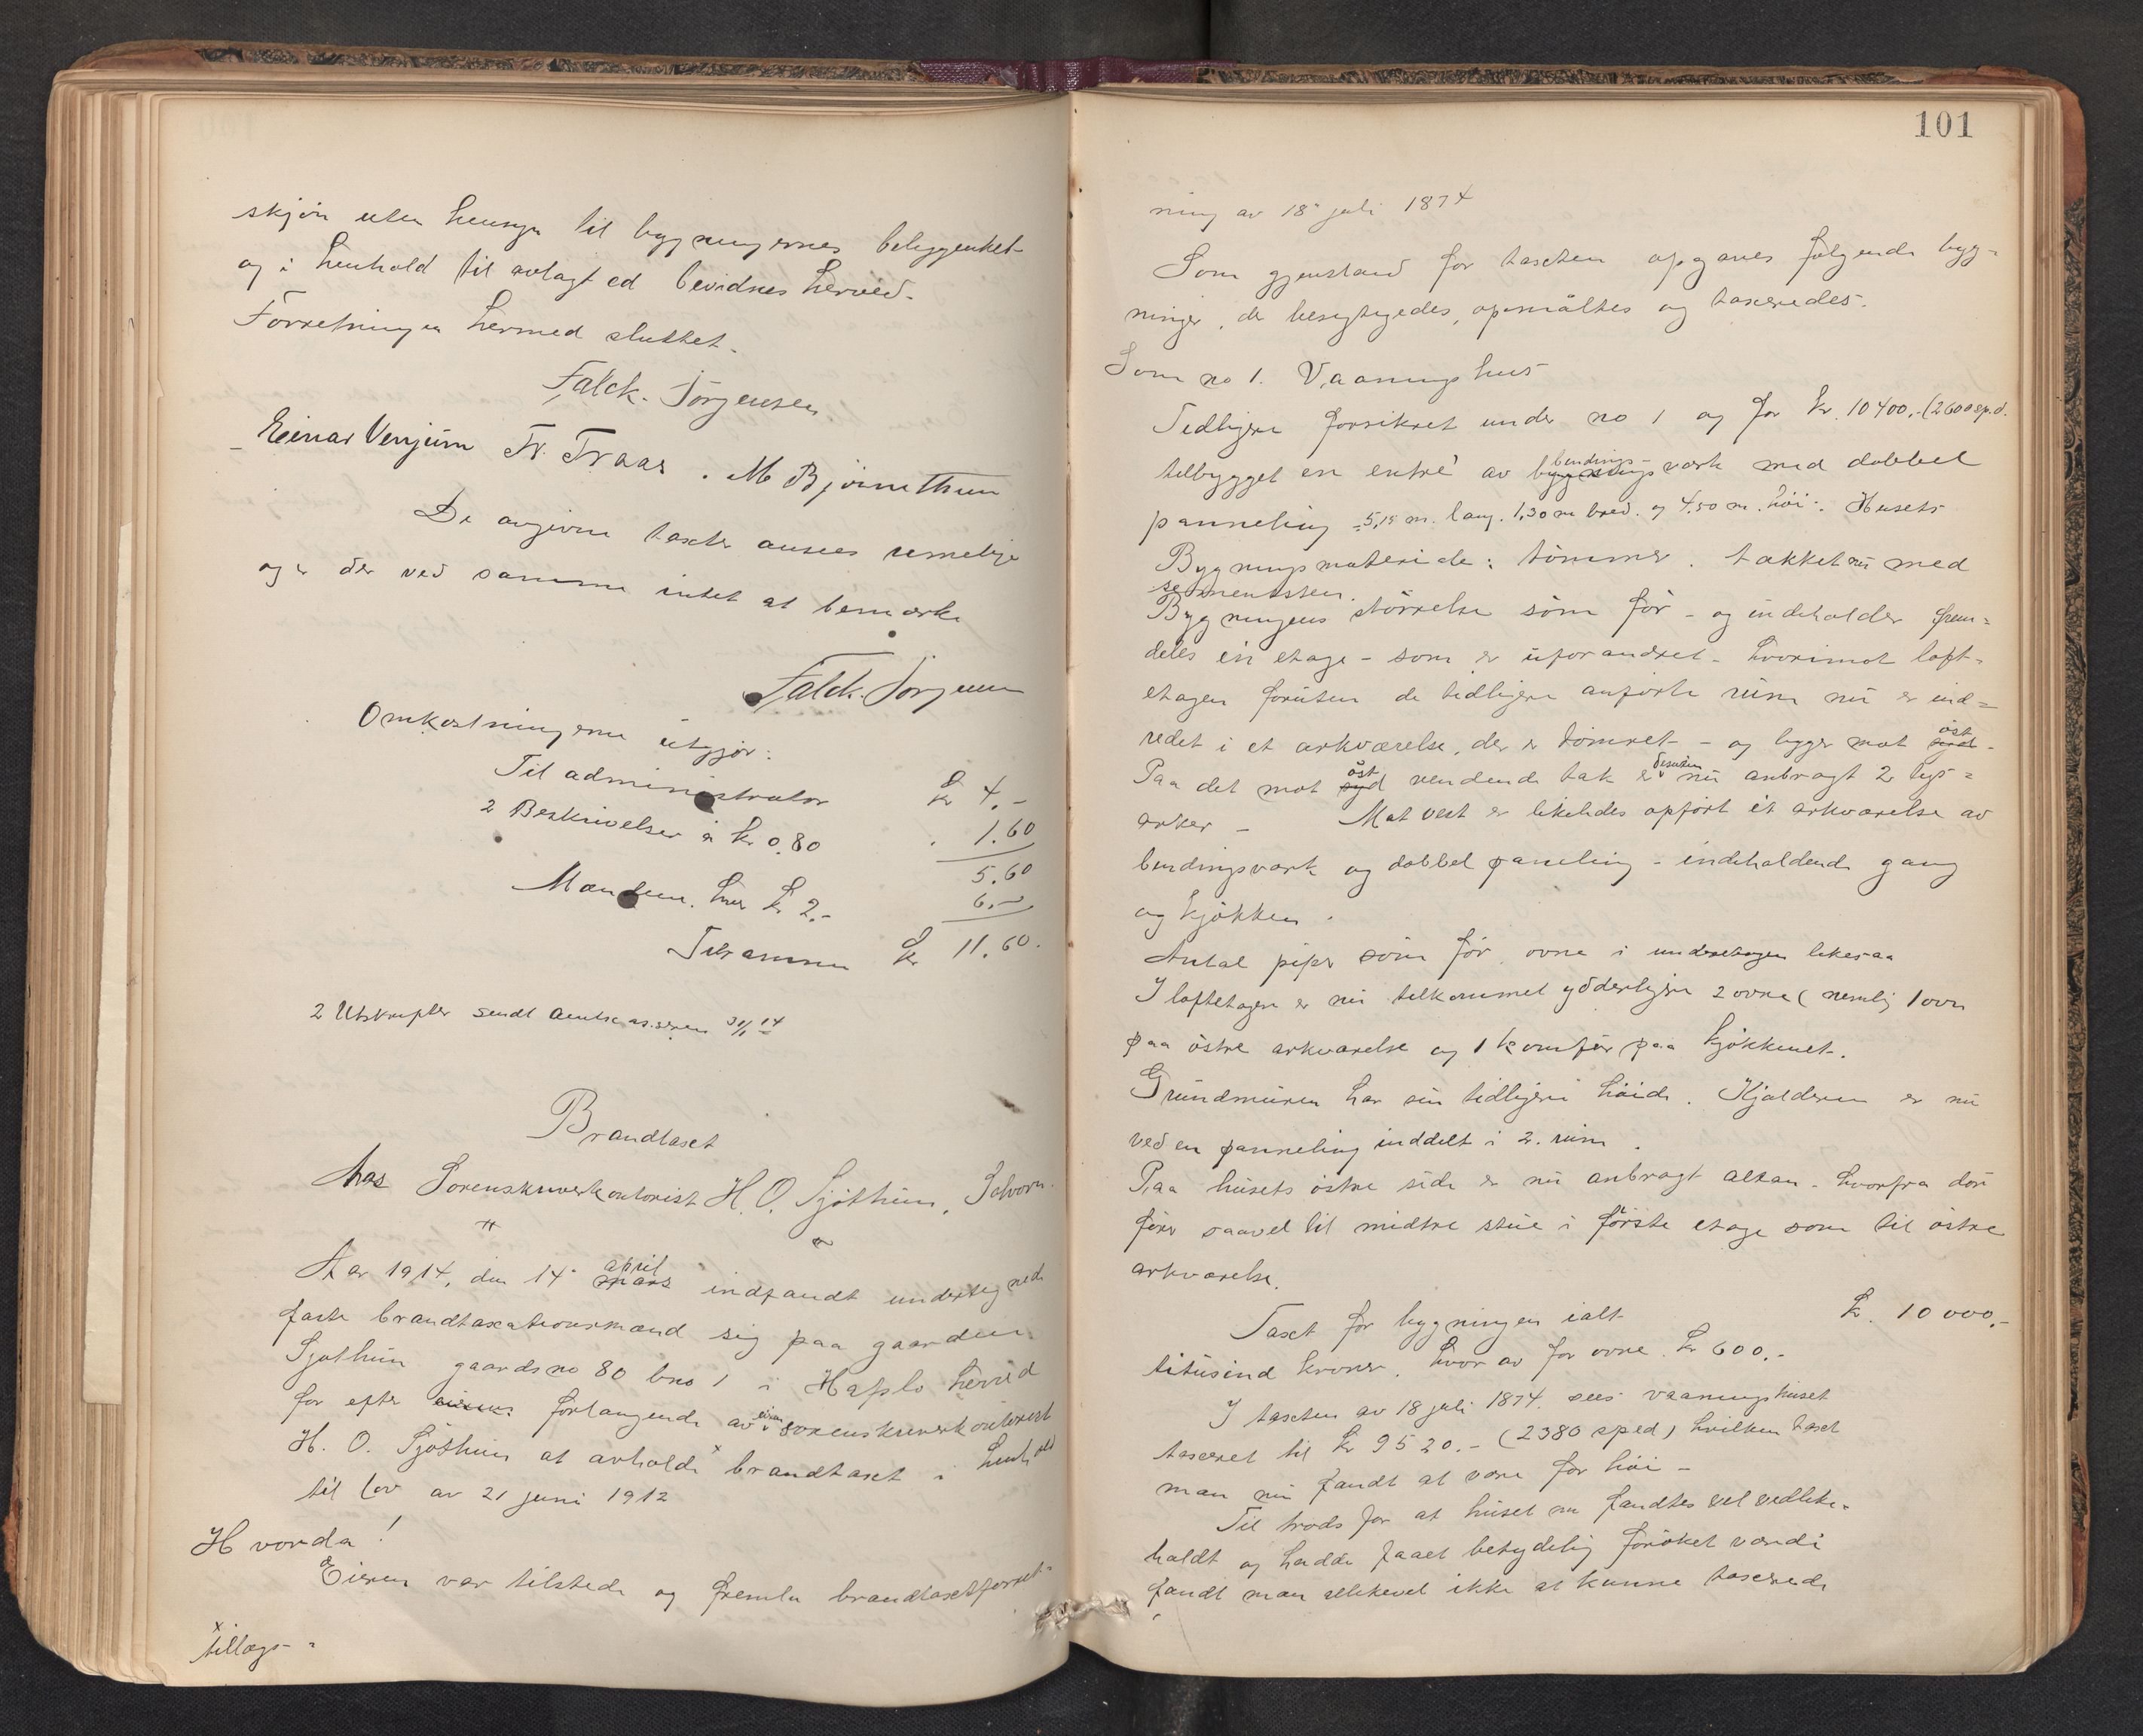 skjøn uten hensyn til bygningernes beliggenhet
og i henhold til avlagt ed bevidnes herved.
Forretningen hermed sluttet.
Falck-Jörgensen
Einar Venjum Tr. Traas. M Bjørnethun
De angivne taxter ansees rimelige
og er der ved samme intet at bemærke
Falck-Jörgensen
Omkostningerne utgjør:
Til administrator kr 4.-
2 Beskrivelser a kr 0.80 . 1.60
5.60
Mændene hver kr 2.- 6.-
Tilsammen kr 11.60.
2 Utskrifter sendt 31/1 14
Brandtaxt
hos Sorenskriverkontorist H. O. Sjøthun, Solvorn.
Aar 1914, den 14de mars april indfandt undertegnede
faste brandtaxationsmænd sig paa gaarden
Sjøthun gaardsno 80 bno 1 i Hafslo herred
for efter forlangende av eieren sorenskriverkontorist
H. O. Sjøthun at avholde x brandtaxt i henhold
til lov av 21 juni 1912
Hvorda!
Eieren var tilstede og fremla brandtaxtforret-
x tillægs-
101
ning av 18de juli 1874
Som gjenstand for taxten opgaves følgende byg-
ninger, de besigtigedes, opmåltes og taxeredes.
Som no 1. Vaaningshus
Tidligere forsikret under no 1 og for kr. 10400.- (2600 sp.d.
tilbygget en entré av bygnings bindings-værk med dobbel
panneling - 5,15 m. lang. 1,30 m bred. og 4.50 m. høi-. Husets
Bygningsmateriale: tømmer. takket nu med
sementsten.
Bygningens størrelse som før - og indeholder frem-
deles én etage - som er uforandret. hvorimot loft-
etagen foruten de tidligere anførte rum nu er ind-
redet i et arkværelse, der er tømret - og ligger mot syd øst.
Paa det mot syd øst vendende tak er desuten nu anbragt 2 lys-
arker - Mot vest er likeledes opført et arkværelse av
bindingsværk og dobbel paneling - indeholdende gang
og kjøkken.
Antal piper som før, ovne i underetagen likesaa
I loftetagen er nu tilkommet ydderligere 2 ovne (nemlig 1 ovn
paa østre arkværelse og 1 komfur paa kjøkkenet.
Grundmuren har sin tidligere høide. Kjælderen er nu
ved en panneling inddelt i 2. rum.
Paa husets østre side er nu anbragt altan. hvorfra dør
fører saavel til midtre stue i første etage som til østre
arkværelse.
Taxt for bygningen ialt kr. 10000.-
titusind kroner, hvor av for ovne kr 600.-
I taxten av 18 juli 1874. sees vaaningshuset
taxeret til kr 9520.- (2380 sp.d) hvilken taxt
man nu fandt at være for høi -
Til trods for at huset nu fandtes vel vedlike-
holdt og hadde faaet betydelig forøket værdi
fandt man allikevel ikke at kunne taxere de